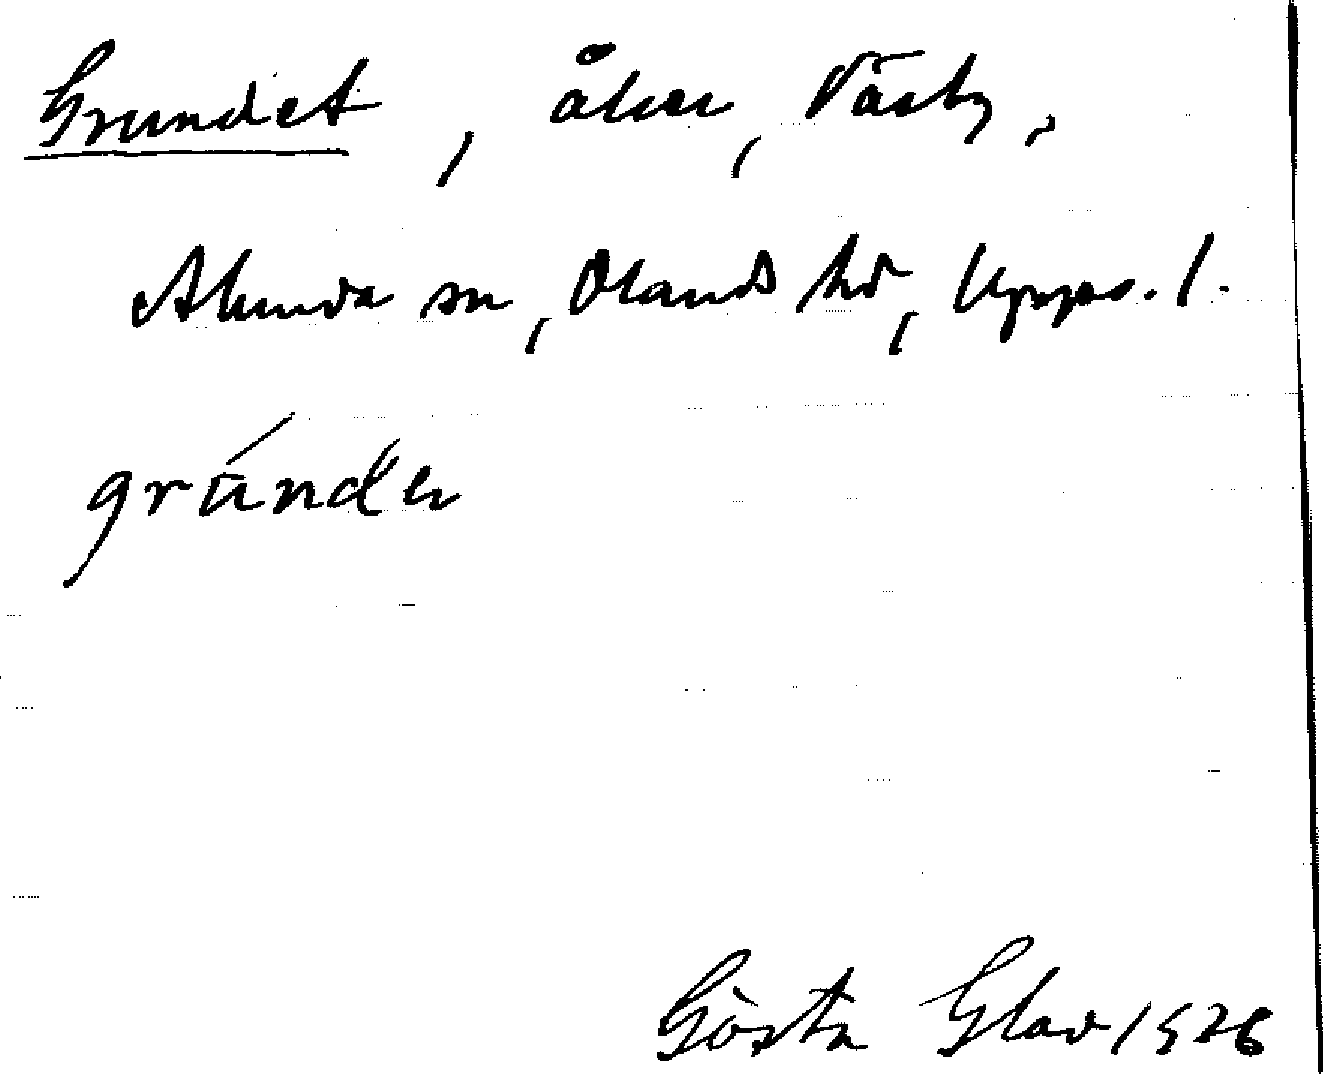 Grundet, åker, Väsby,
Alunda sn, Olands hd, Upps. l.
Gösta Glad 1926